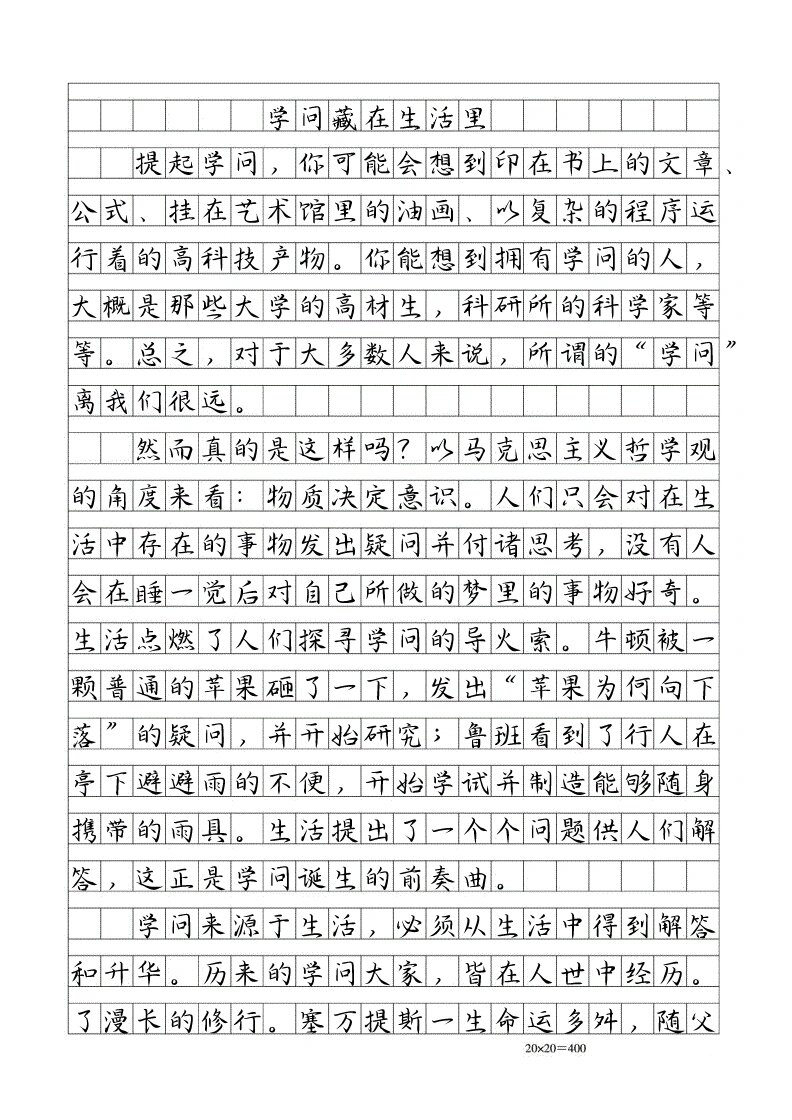 学问藏在生活里
提起学问，你可能会想到印在书上的文章、
公式、挂在艺术馆里的油画、以复杂的程序运
行着的高科技产物。你能想到拥有学问的人，
大概是那些大学的高材生，科研所的科学家等
等。总之，对于大多数人来说，所谓的“学问”
离我们很远。
然而真的是这样吗？以马克思主义哲学观
的角度来看：物质决定意识。人们只会对在生
活中存在的事物发出疑问并付诸思考，没有人
会在睡一觉后对自己所做的梦里的事物好奇。
生活点燃了人们探寻学问的导火索。牛顿被一
颗普通的苹果砸了一下，发出“苹果为何向下
落”的疑问，并开始研究；鲁班看到了行人在
亭下避避雨的不便，开始学试并制造能够随身
携带的雨具。生活提出了一个个问题供人们解
答，这正是学问诞生的前奏曲。
学问来源于生活，必须从生活中得到解答
和升华。历来的学问大家，皆在人世中经历。
了漫长的修行。塞万提斯一生命运多舛，随父
20×20＝400